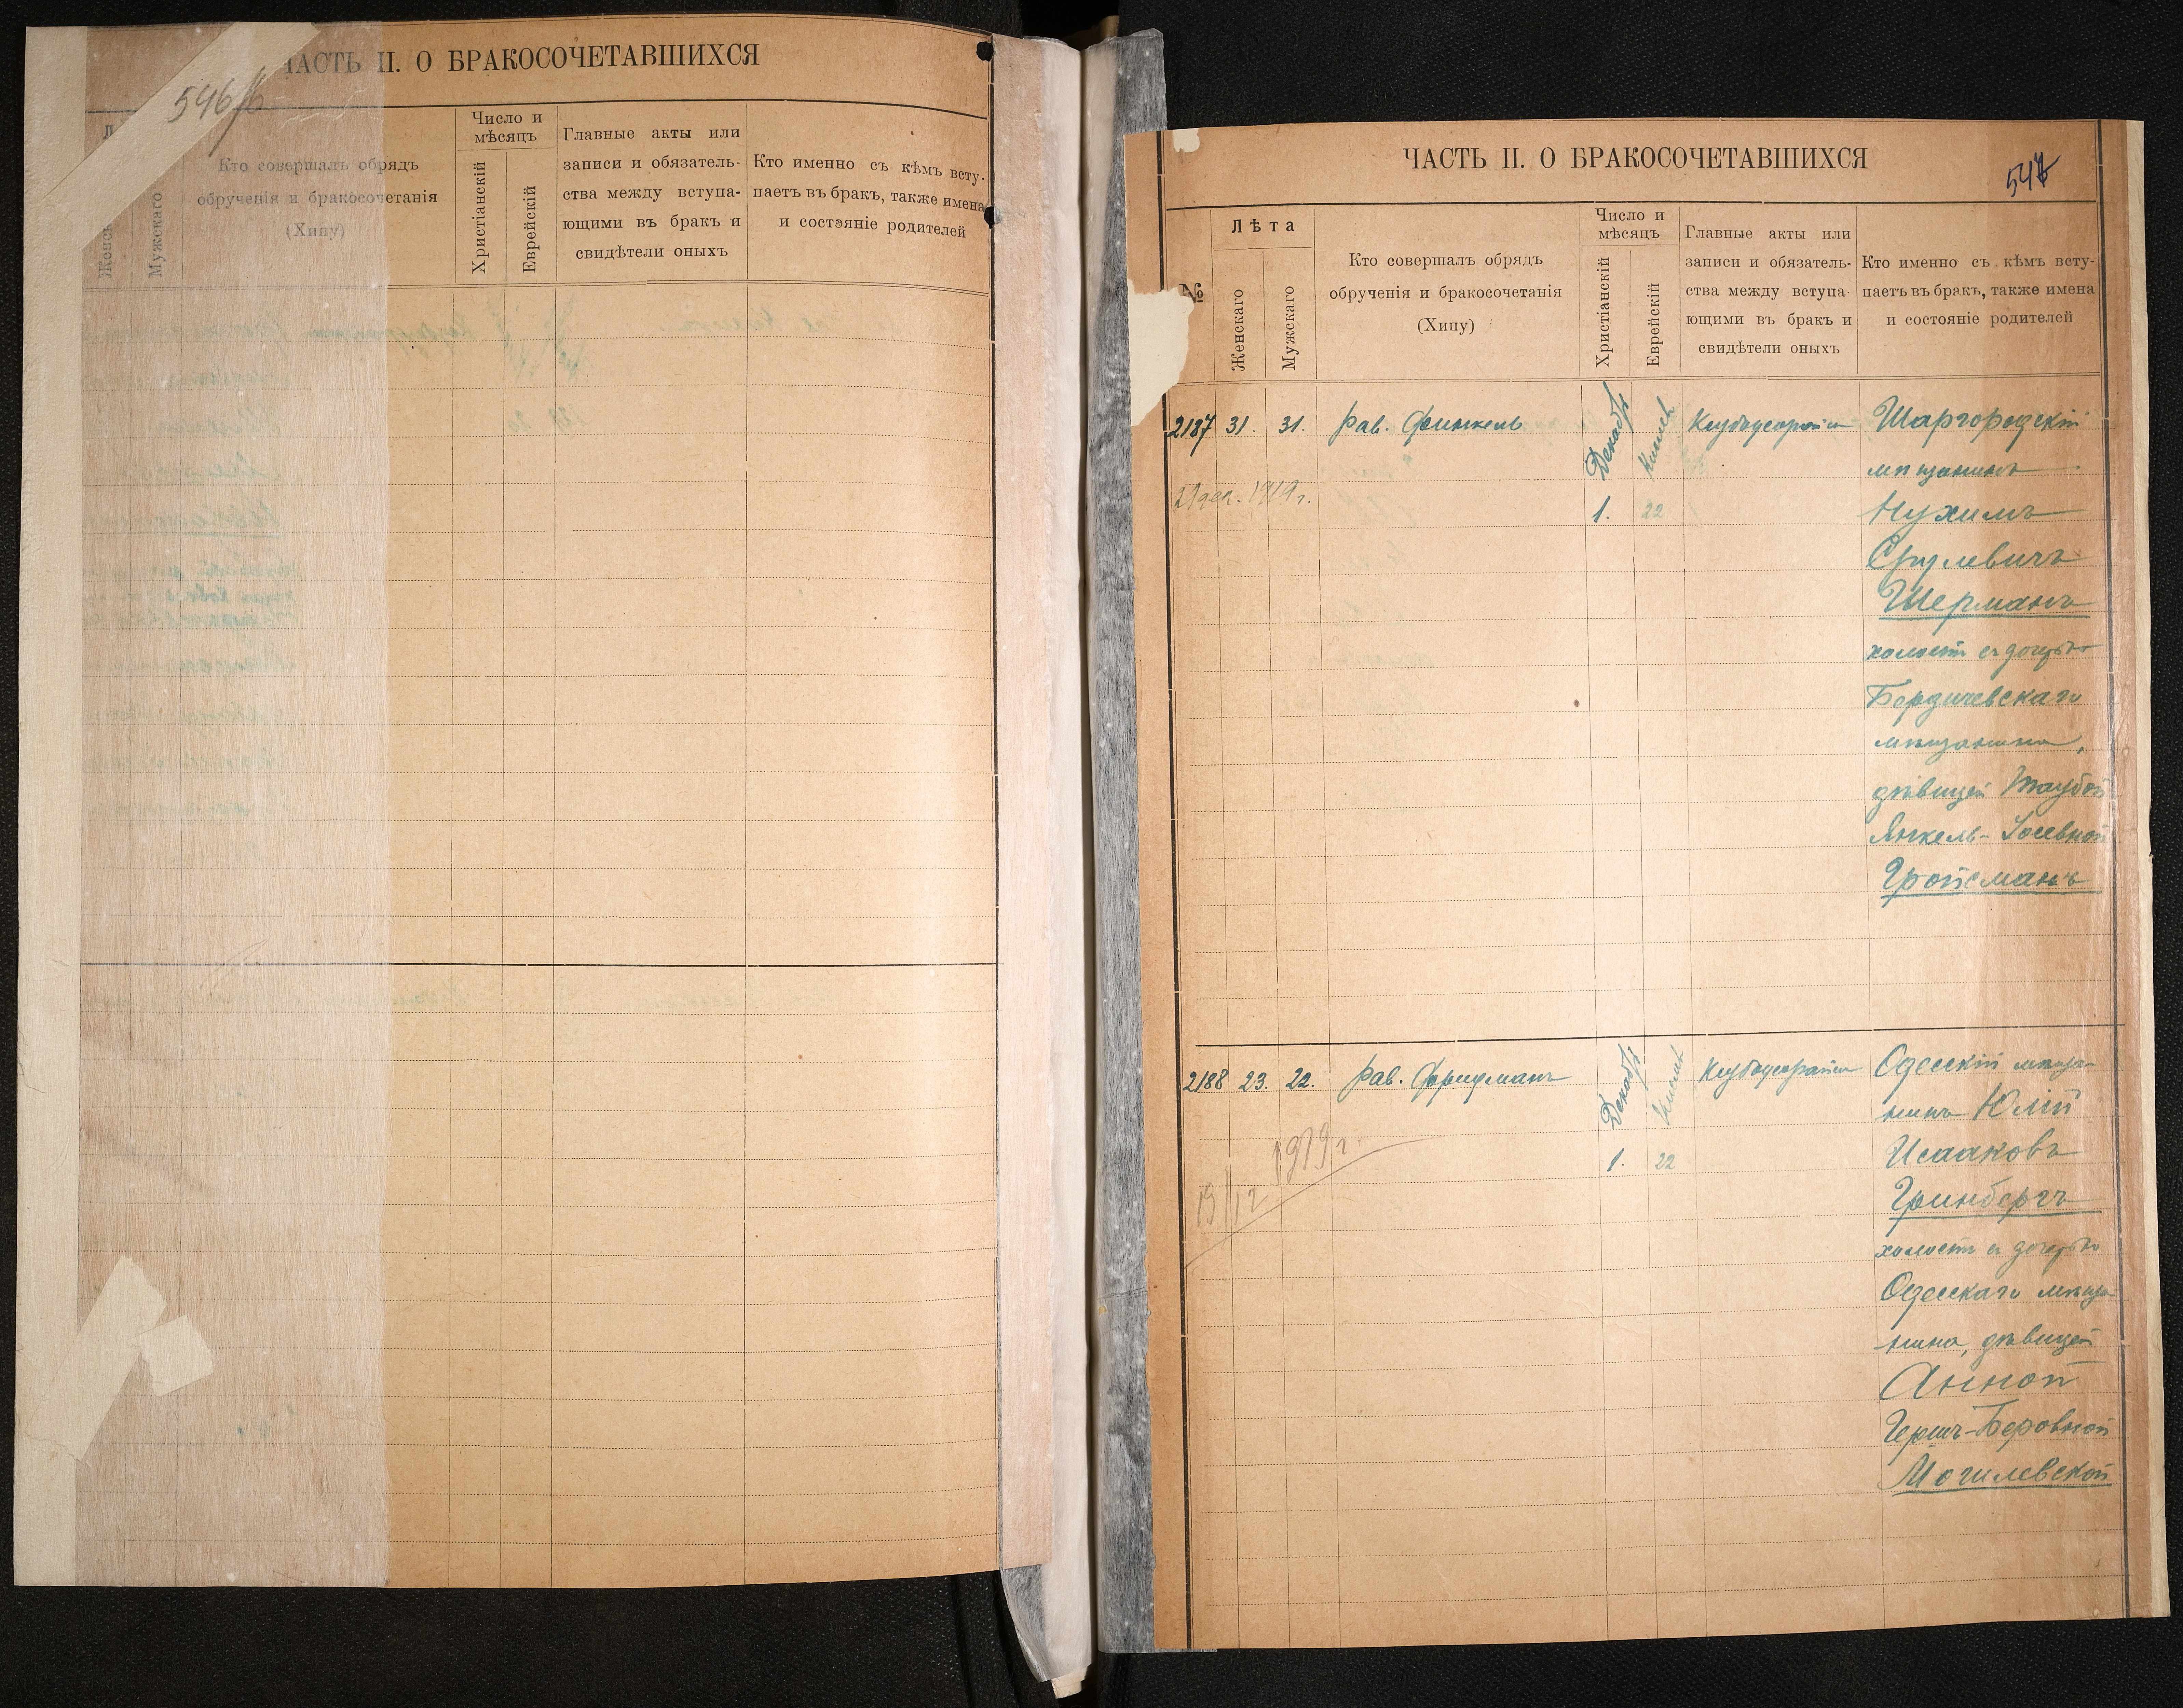 ЧАСТЬ II. О БРАКОСОЧЕТАВШИХСЯ
546/б
Мужскаго
Кто совершалъ обрядъ
обрученія и бракосочетанія
(Хипу)
Число и
мѣсяцъ
Христіанскій
Еврейскій
Главные акты или
записи и обязатель-
ства между вступа-
ющими въ бракъ и
свидѣтели оныхъ
Кто именно съ кѣмъ всту-
паетъ въ бракъ, также имена
и состояніе родителей
ЧАСТЬ II. О БРАКОСОЧЕТАВШИХСЯ
547
№
Лѣта
Женскаго
Мужскаго
Кто совершалъ обрядъ
обрученія и бракосочетанія
(Хипу)
Число и
мѣсяцъ
Христіанскій
Еврейскій
Главные акты или
записи и обязатель-
ства между вступа-
ющими въ бракъ и
свидѣтели оныхъ
Кто именно съ кѣмъ всту-
паетъ въ бракъ, также имена
и состояніе родителей
2187 31. 31. Рав. Финкель Декабрь Кислев Ктубадеорайса Шаргородскій
мѣщанинъ
29 дек. 1919 г.
1. 22 Нухимъ
Срулевичъ
Шерманъ
холостъ съ дочерью
Бердичевскаго
мѣщанина,
дѣвицей Таубой
Янкель-Іосевной
Гройсманъ
2188 23. 22. Рав. Фридманъ Декабрь Кислев Ктубадеорайса Одесскій мѣща-
нинъ Юлій
19/12 1919 г.
1. 22 Исааковъ
Гринбергъ
холостъ съ дочерью
Одесскаго мѣща-
нина, дѣвицей
Анной
Гершъ-Беровной
Могилевской